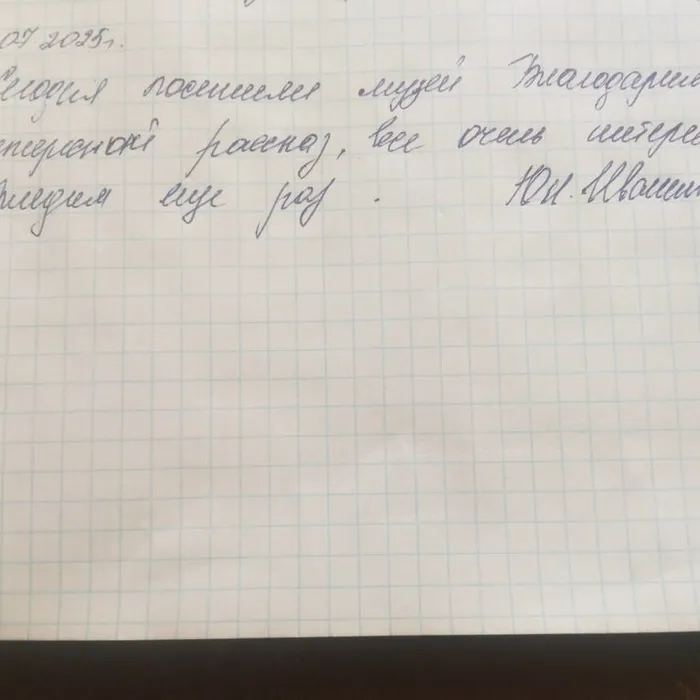 07 2025г.
Сегодня посетили музей Благодарим
интересный рассказ, все очень интере
Приедем еще раз. Юл. Ивани